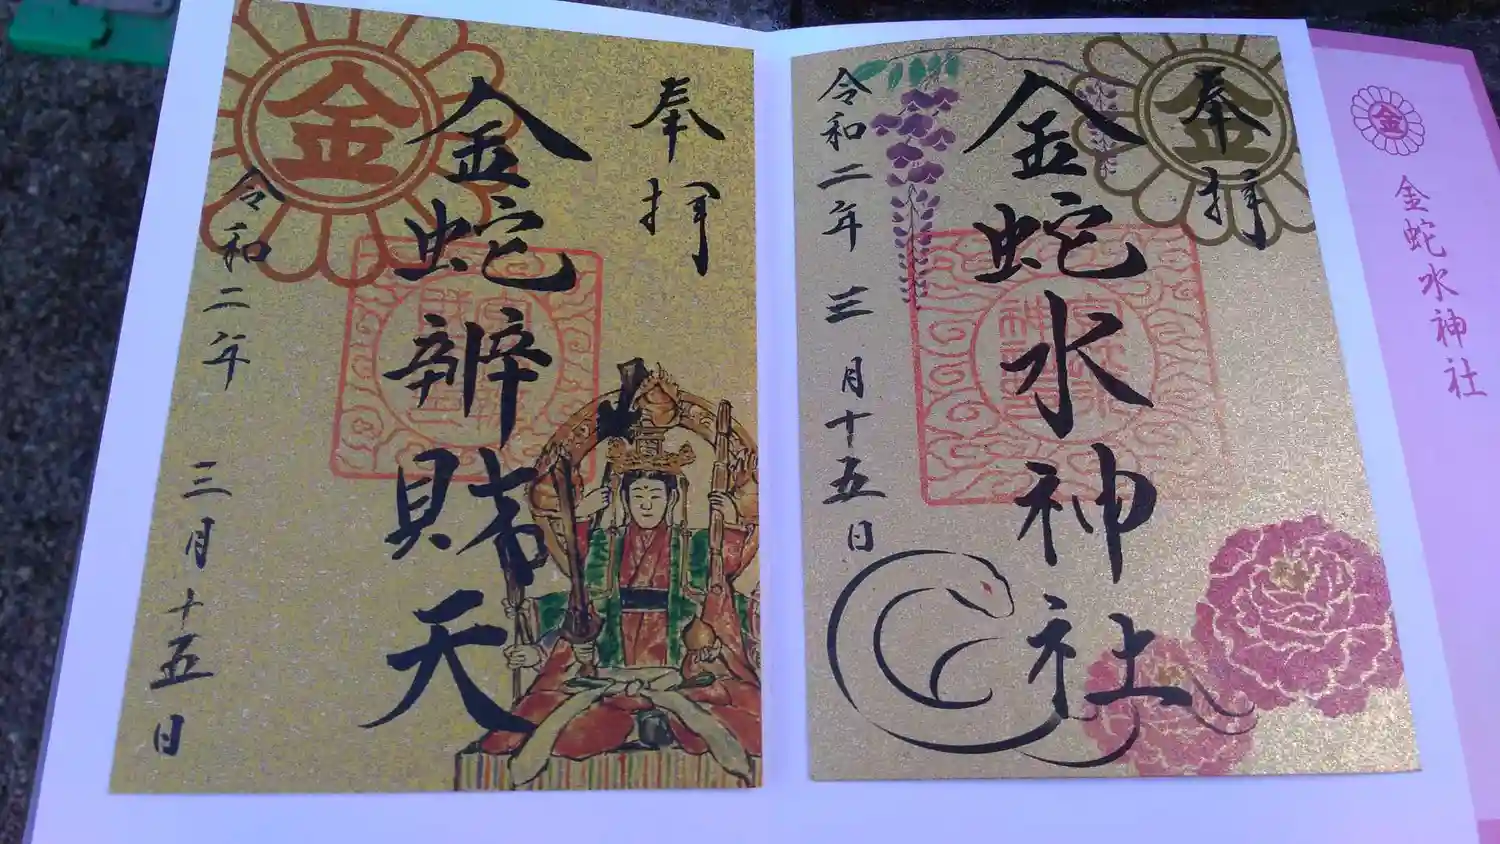 奉拝
金蛇水神社
令和二年三月十五日
金
奉拝
金蛇辨財天
令和二年三月十五日
金
金
金蛇水神社